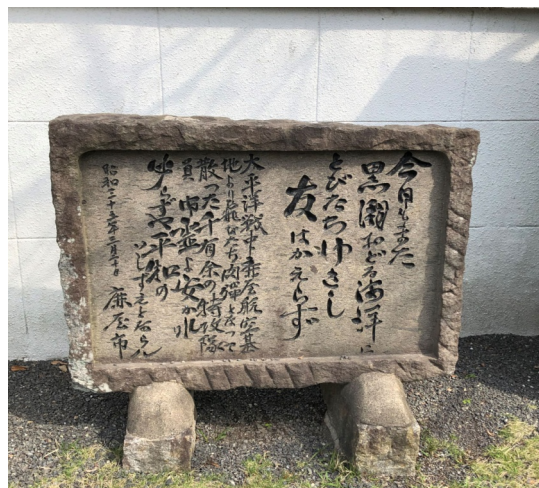 今日もまた
黒潮おどる海洋に
とびたちゆきし
友はかえらず
太平洋戦中鹿屋航空基
地より飛びたち肉彈となって
散った千有余の特攻隊
員の御霊よ安かれ
必らずや平和の
いしずえとならん
昭和三十五年三月二十日 鹿屋市